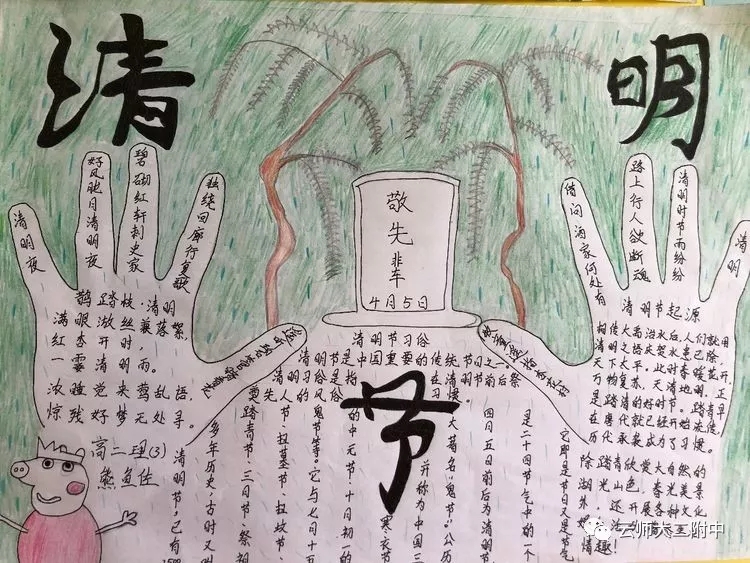 清
明
清明夜
好风胧月清明夜
碧砌红轩刺史家
独绕回廊行复歇
鹊踏枝·清明
满眼游丝兼落絮，
红杏开时，
一霎清明雨。
浓睡觉来莺乱语，
惊残好梦无处寻。
高二理(3)
熊鱼佳
敬先
4月5日
借问酒家何处有
路上行人欲断魂
清明时节雨纷纷
清明
清明节起源
相传大禹治水后，人们就用
清明之语庆贺水患已除，
天下太平。此时春暖花开，
万物复苏，天清地明，正
是踏青的好时节。踏青早
在唐代就已经开始，
历代承袭成为了习惯。
除踏青欣赏大自然的
湖光山色、春光美景
外，还开展各种文化
清明节习俗
清明是中国重要的传统节日之一。
节
它即是节日又是节气
是二十四节气中的一个
四月五日前后为清明节
大著名"鬼节"。公历
并称为中国三
的中元节、十月初一的
寒衣节
人节、扫墓节、
鬼节等。它与七月十五
踏青节、三日节、祭祖
多年历史，古时又叫
清明节，已有
云师大附中